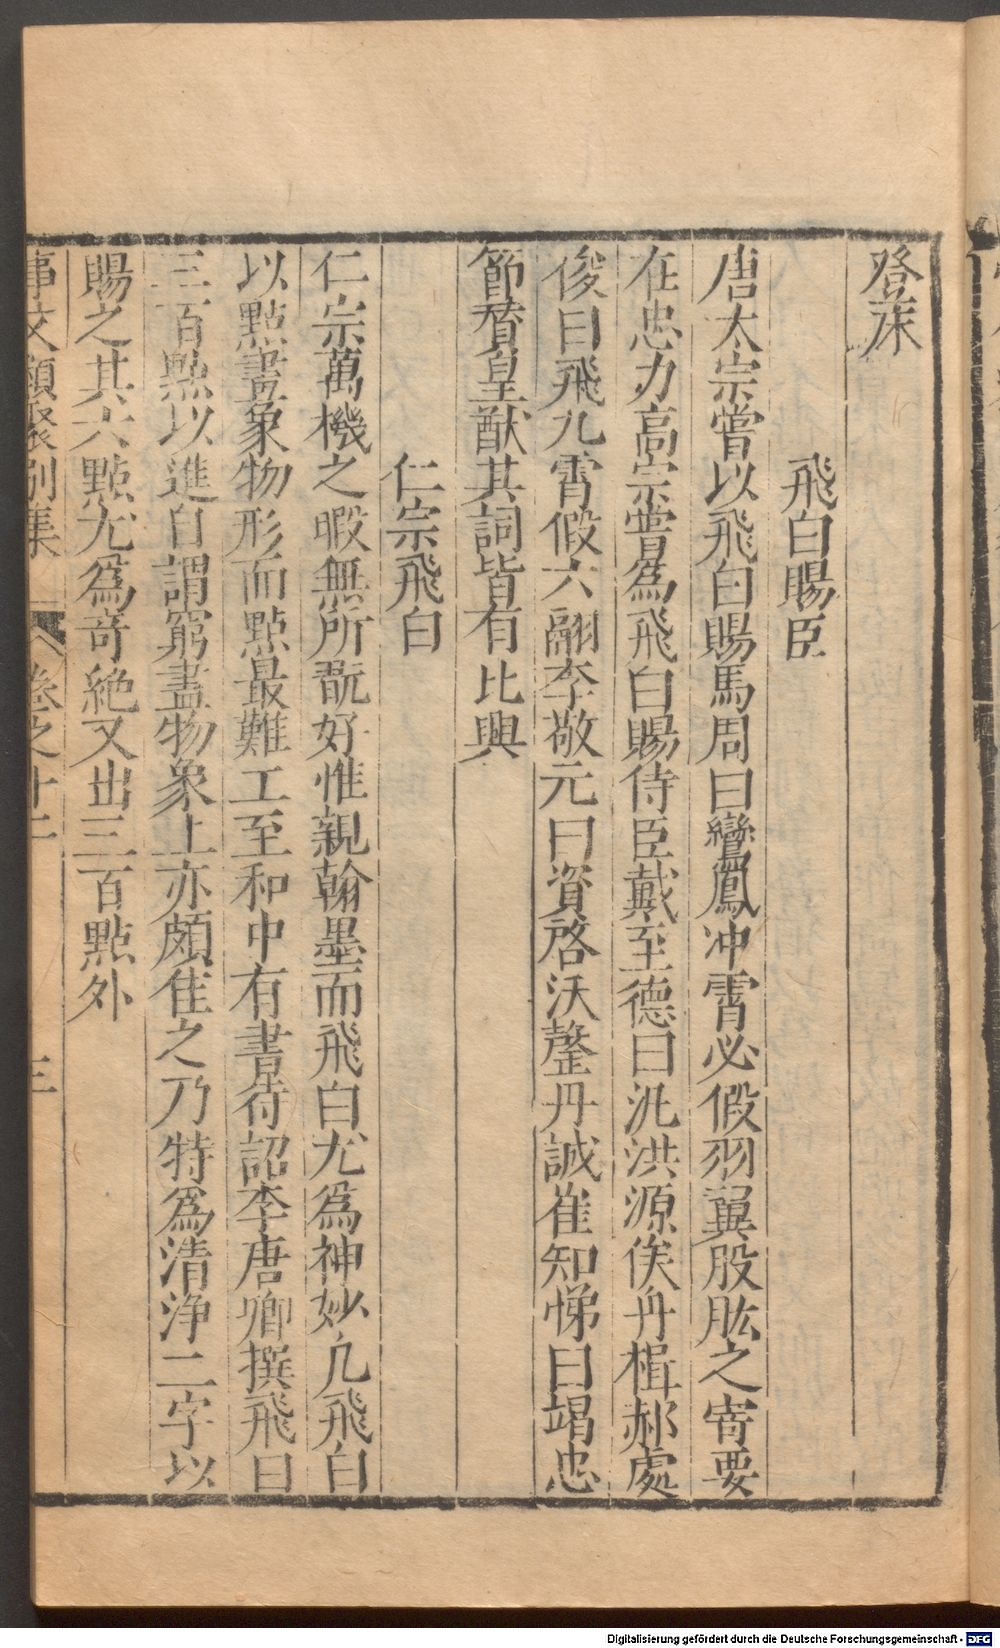 登床
飛白賜臣
唐太宗嘗以飛白賜馬周曰鸞鳳冲霄必假羽翼股肱之寄要
在忠力高宗嘗爲飛白賜侍臣戴至德曰汎洪源俟舟楫郝處
俊曰飛九霄假六翮李敬元曰資啓沃罄丹誠崔知悌曰竭忠
節賛皇猷其詞皆有比興
仁宗飛白
仁宗萬機之暇無所翫好惟親翰墨而飛白尤爲神妙凢飛白
以點畫象物形而點最難工至和中有書待詔李唐卿撰飛白
三百點以進自謂窮盡物象上亦頗佳之乃特爲清浄二字以
賜之其六點尤爲奇絶又出三百點外
事文類聚別集 卷之十二 三
Digitalisierung gefördert durch die Deutsche Forschungsgemeinschaft - DFG